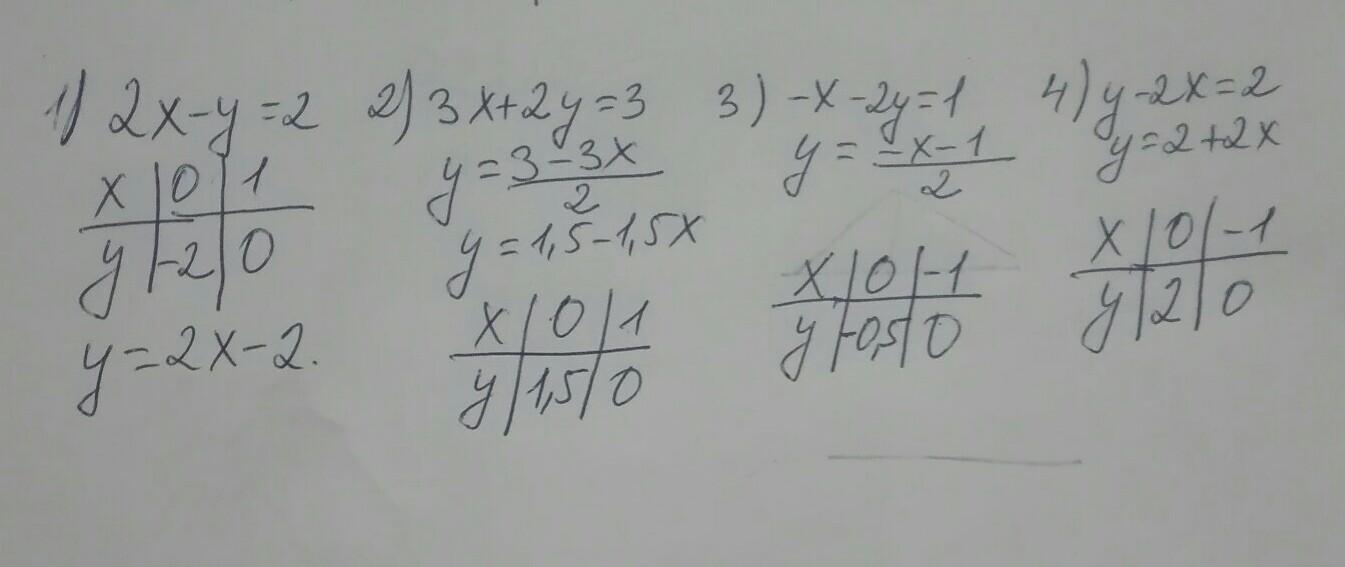 1) 2x-y=2
x | 0 | 1
y | -2 | 0
y=2x-2.
2) 3x+2y=3
y = (3-3x)/2
y=1,5-1,5x
x | 0 | 1
y | 1,5 | 0
3) -x-2y=1
y = (-x-1)/2
x | 0 | -1
y | -0,5 | 0
4) y-2x=2
y=2+2x
x | 0 | -1
y | 2 | 0